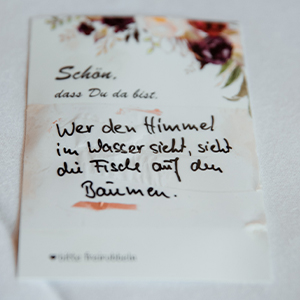 Schön,
dass Du da bist.
Wer den Himmel
im Wasser sieht, sieht
die Fische auf den
Bäumen.